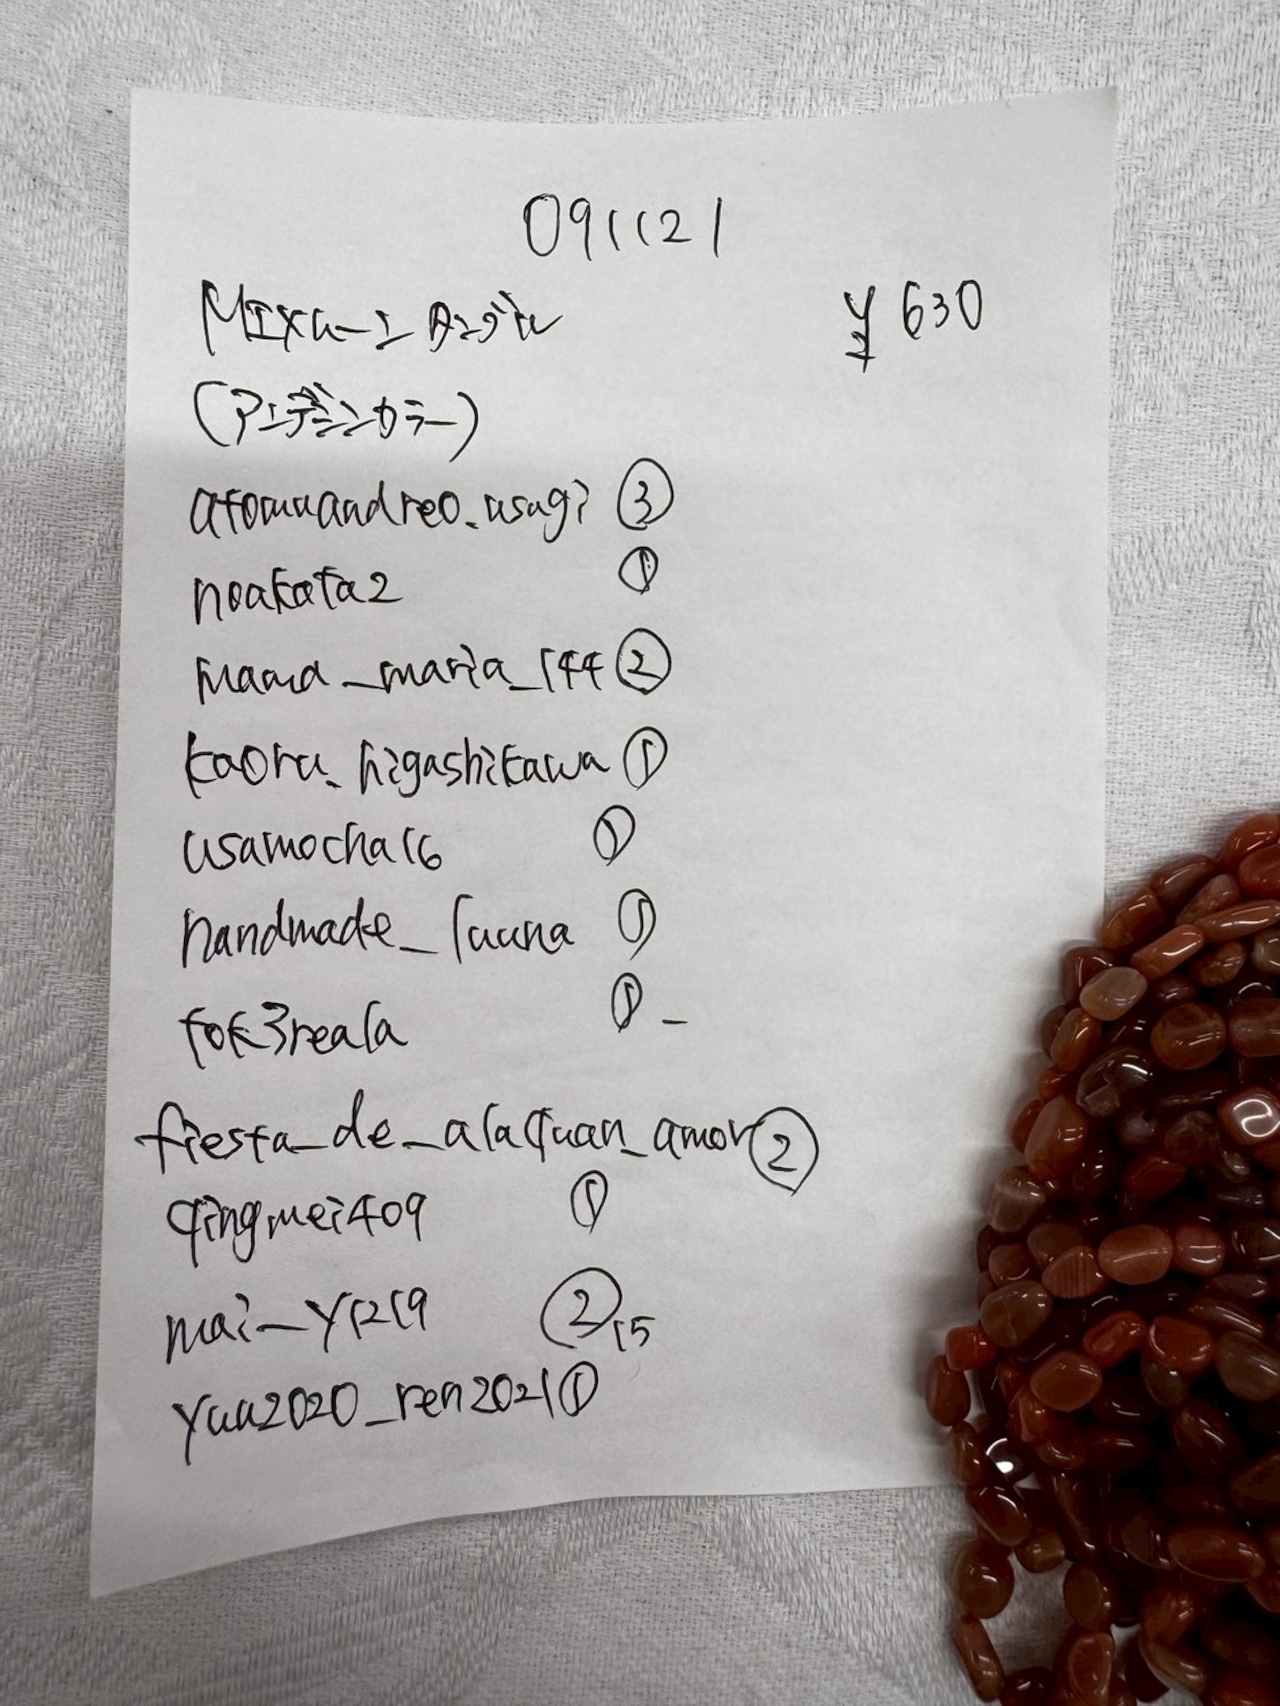 091121
MIXルース タンブル ¥630
(アンデシンカラー)
atomuandreo.usagi ③
noakata2 ①
mama_maria_144 ②
kaoru.higashikawa ①
usamocha16 ①
handmade_fauna ①
tok3reala ① -
fiesta_de_alaquan_amor ②
qingmei409 ①
mai_y1219 ② 15
yuu2020_ren2021 ①